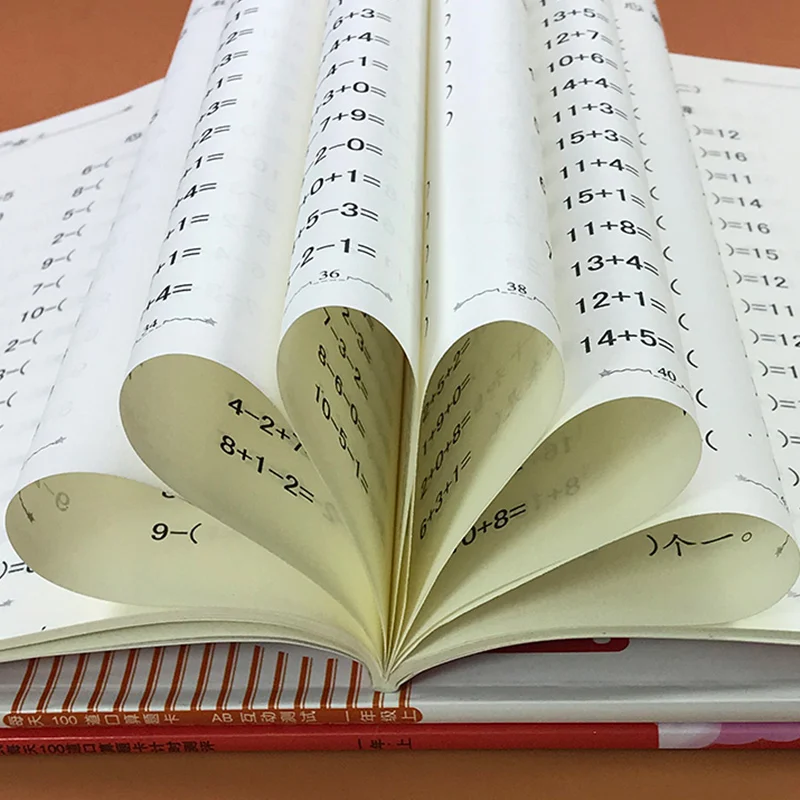 6-(
8-(
5-(
2-(
9-(
7-(
10-(
2-(
3-(
1=
2=
3=
1=
3=
2=
1=
4=
1=
+1=
+4=
34
6+3=
4+4=
4-1=
3+0=
7+9=
2-0=
0+1=
5-3=
2-1=
36
38
13+5=
12+7=
10+6=
14+4=
11+3=
15+3=
11+4=
15+1=
11+8=
13+4=
12+1=
14+5=
40
)=12
)=16
)=11
)=14
)=16
)=15
)=12
)=11
)=12
4-2+7
8+1-2=
1-3-2=
8-6-0=
10-5-1=
2+5+2=
1+9+0=
2+0+8=
6+3+1=
0+8=
9-(
)个一。
每天100道口算题卡 AB互动测试 一年级上
每天100道口算题卡计时测评 一年·上